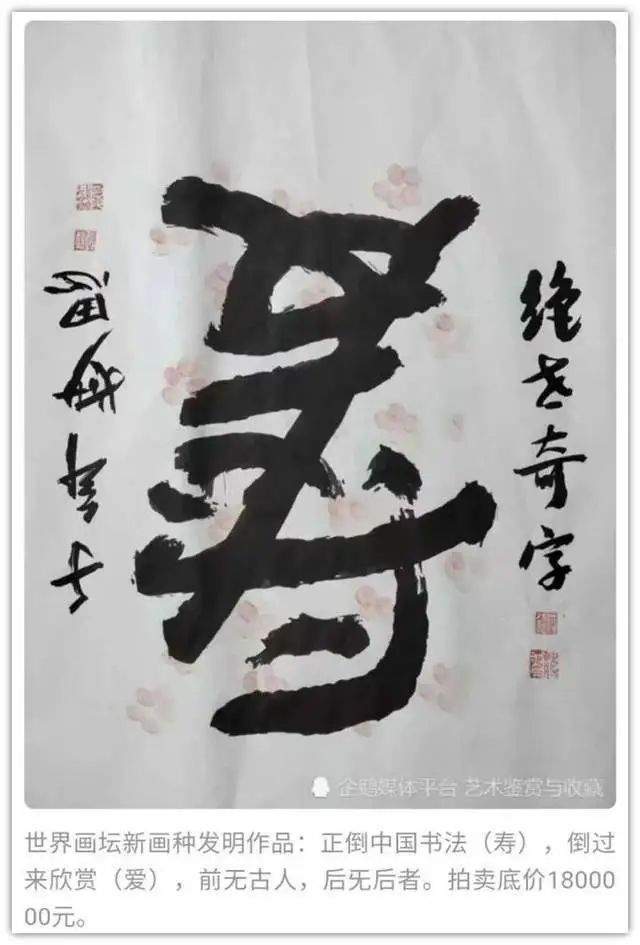 绝世奇字
寿
企鹅媒体平台 艺术鉴赏与收藏
世界画坛新画种发明作品：正倒中国书法（寿），倒过
来欣赏（爱），前无古人，后旡后者。拍卖底价180000
00元。